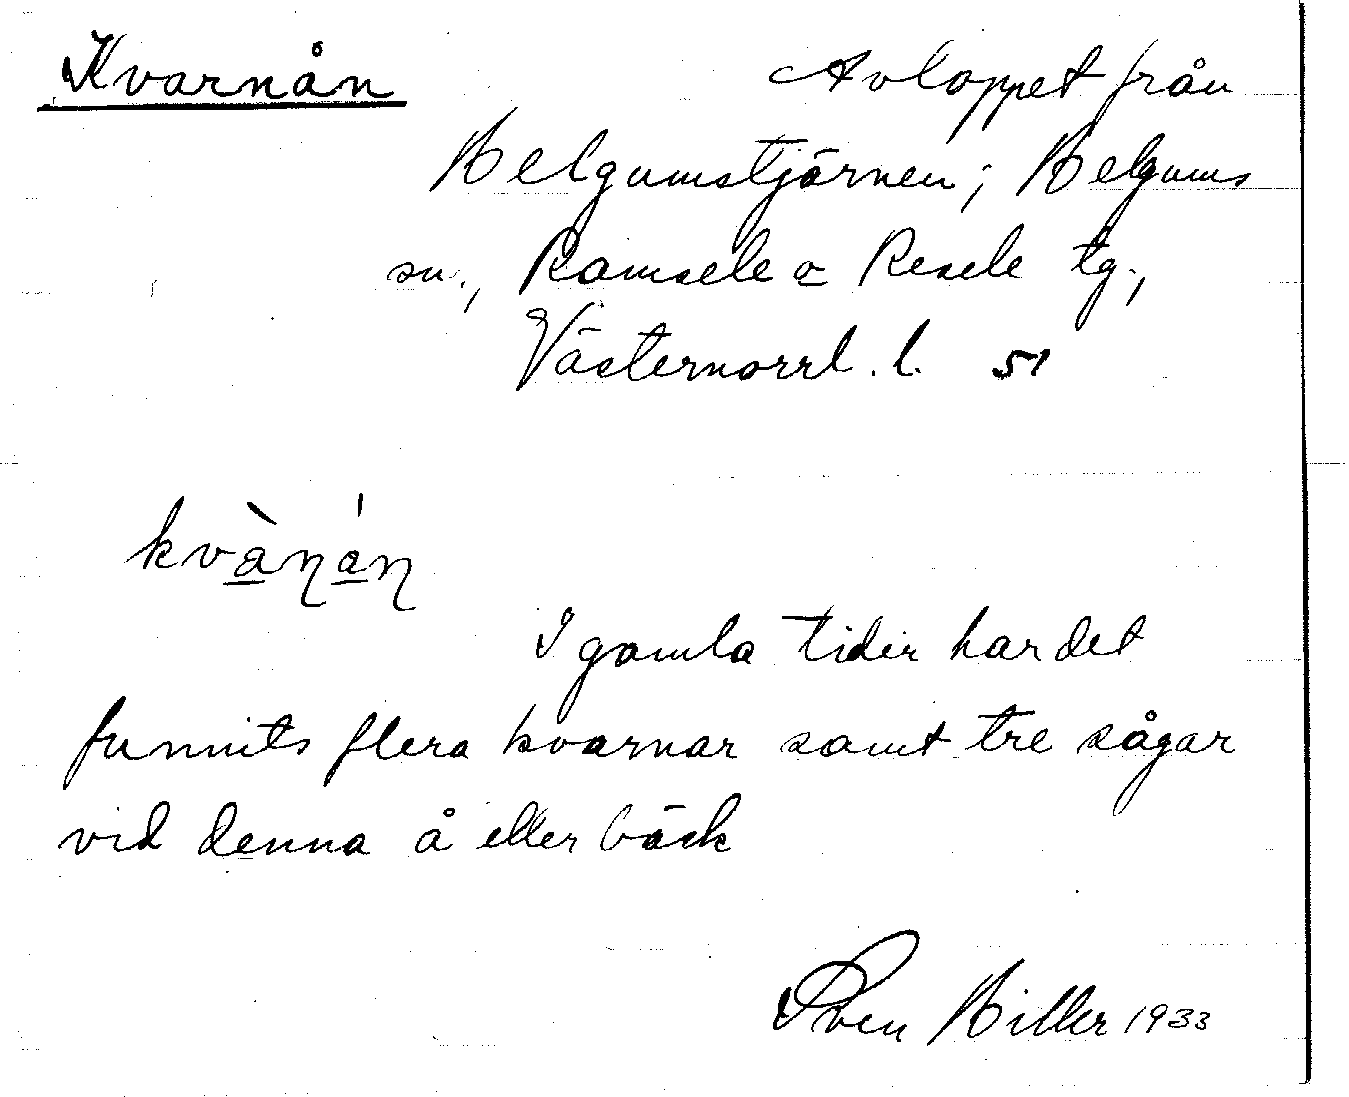 Kvarnån Avloppet från
Helgumstjärnen; Helgums
sn., Ramsele o Resele tg.,
Västernorrl. l. 51
kvàɳáɳ
I gamla tider har det
funnits flera kvarnar samt tre sågar
vid denna å eller bäck
Sven Hiller 1933